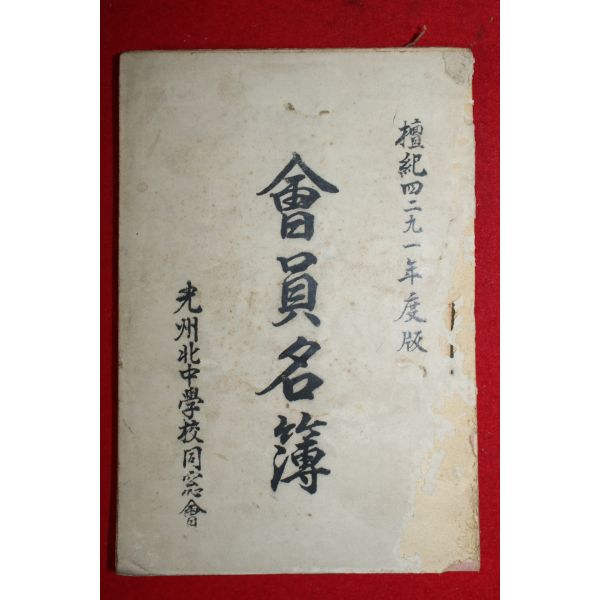 檀紀四二九一年度版
會員名簿
光州北中學校同窓會